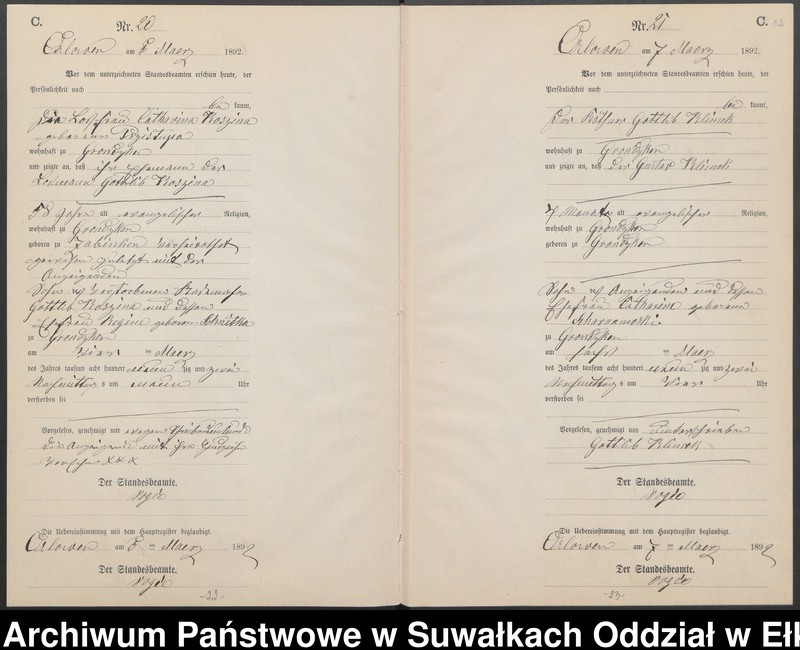 C.
Nr. 20
Orlowen am 5 Maerz 1892.
Vor dem unterzeichneten Standesbeamten erschien heute, der
Persönlichkeit nach
be kannt,
die Losfrau Catharina Koszina
geborene
wohnhaft zu Grondzken
und zeigte an, daß ihr Ehemann der
Losmann Gottlieb Koszina
58 Jahre alt evangelischer Religion,
wohnhaft zu Grondzken
geboren zu Zabinken verheirathet
gewesen zuletzt mit der
Anzeigenden
Sohn des verstorbenen
Gottlieb Koszina und dessen
Ehefrau Regine geborene
zu Grondzken
am vier ten Maerz
des Jahres tausend acht hundert neun zig und zwei
Nachmittags um neun Uhr
verstorben sei
Vorgelesen, genehmigt und wegen
die Anzeigende mit ihre
versehen XXX
Der Standesbeamte.
Vogde
Die Uebereinstimmung mit dem Hauptregister beglaubigt.
Orlowen am 5 ten Maerz 1892
Der Standesbeamte.
Vogde
-22-
Nr. 21
C.
Orlowen am 7 Maerz 1892.
Vor dem unterzeichneten Standesbeamten erschien heute, der
Persönlichkeit nach
be kannt,
der Gottlieb Klimek
wohnhaft zu Grondzken
und zeigte an, daß der Gustav Klimek
7 Monate alt evangelischer Religion,
wohnhaft zu Grondzken
geboren zu Grondzken
Sohn des Anzeigenden und dessen
Ehefrau Catharine geborene
zu Grondzken
am sechs ten Maerz
des Jahres tausend acht hundert neun zig und zwei
Nachmittags um vier Uhr
verstorben sei
Vorgelesen, genehmigt und unterschrieben
Gottlieb Klimek
Der Standesbeamte.
Vogde
Die Uebereinstimmung mit dem Hauptregister beglaubigt.
Orlowen am 7 ten Maerz 1892
Der Standesbeamte.
Vogde
-23-
Archiwum Państwowe w Suwałkach Oddział w Ełk